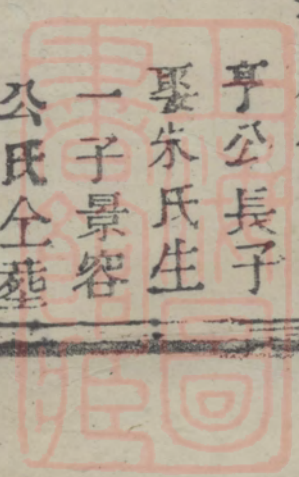 亨公長子
娶朱氏生
一子景容
公氏仝塟